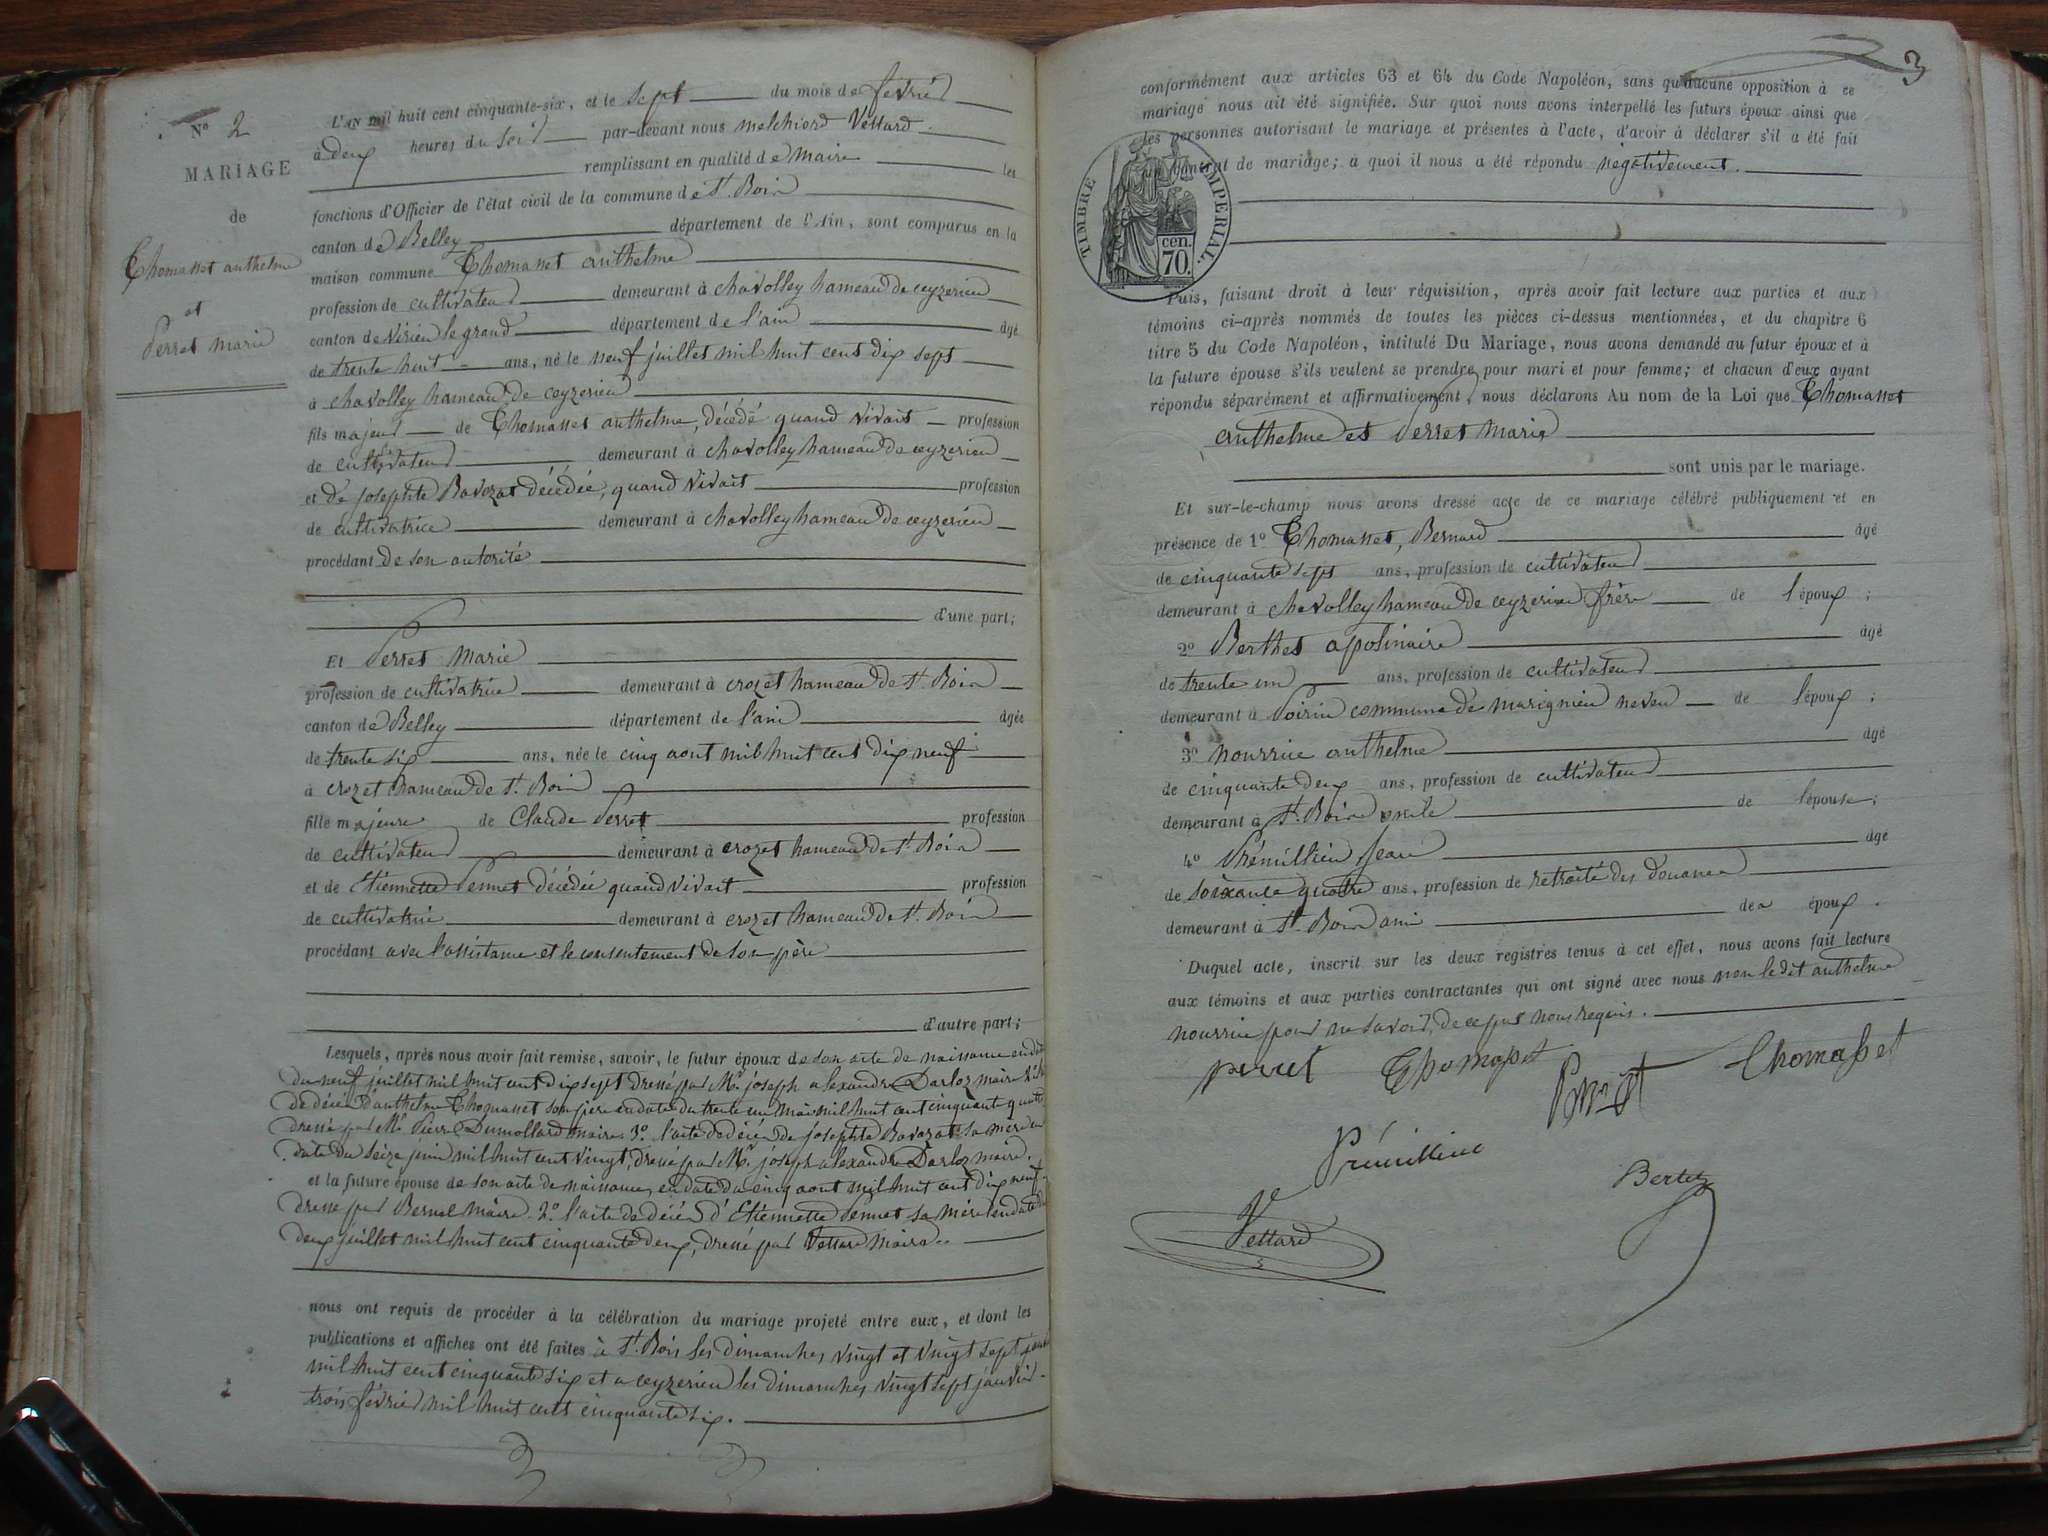 N° 2
MARIAGE
de
Thomasset anthelme
et
Perret marie
L'AN mil huit cent cinquante-six, et le sept du mois de février
à deux heures du soir par-devant nous melchiord Vettard
remplissant en qualité de maire les
fonctions d'Officier de l'état civil de la commune de St. Bois
canton de Belley département de l'Ain, sont comparus en la
maison commune Thomasset anthelme
profession de cultivateur demeurant à chavolley hameau de ceyzerieu
canton de virieu le grand département de l'ain âgé
de trente huit ans, né le neuf juillet mil huit cent dix sept
à chavolley hameau de ceyzerieu
fils majeur de Thomasset anthelme, décédé quand vivait profession
de cultivateur demeurant à chavolley hameau de ceyzerieu
et de josephte Bavozat décédée, quand vivait profession
de cultivatrice demeurant à chavolley hameau de ceyzerieu
procédant de son autorité
d'une part;
Et Perret Marie
profession de cultivatrice demeurant à crozet hameau de St. Bois
canton de Belley département de l'ain âgée
de trente six ans, née le cinq aout mil huit cent dix neuf
à crozet hameau de St. Bois
fille majeure de Claude Perret profession
de cultivateur demeurant à crozet hameau de St. Bois
et de Etiennette Pennet décédée quand vivait profession
de cultivatrice demeurant à crozet hameau de St. Bois
procédant avec l'assistance et le consentement de son père
d'autre part;
Lesquels, après nous avoir fait remise, savoir, le futur époux de son acte de naissance en date
du neuf juillet mil huit cent dix sept dressé par Mr. joseph alexandre Darloz maire 2°
de décès d'anthelme Thomasset son père en date du trente un mai mil huit cent cinquante quatre
dressé par Mr. Pierre Dumollard maire. 3°. l'acte de décès de josephte Bavozat sa mère en
date du seize juin mil huit cent vingt, dressé par Mr. joseph alexandre Darloz maire.
et la future épouse de son acte de naissance, en date du cinq aout mil huit cent dix neuf
dressé par Bernel maire. 2°. l'acte de décès d'Etiennette Pennet sa mère en date du
deux juillet mil huit cent cinquante deux, dressé par Vettard Maire
nous ont requis de procéder à la célébration du mariage projeté entre eux, et dont les
publications et affiches ont été faites à St. Bois les dimanches vingt et vingt sept janvier
mil huit cent cinquante six et a ceyzerieu les dimanches vingt sept janvier
trois février mil huit cent cinquante six.
3
conformément aux articles 63 et 64 du Code Napoléon, sans qu'aucune opposition à ce
mariage nous ait été signifiée. Sur quoi nous avons interpellé les futurs époux ainsi que
les personnes autorisant le mariage et présentes à l'acte, d'avoir à déclarer s'il a été fait
contrat de mariage; à quoi il nous a été répondu négativement.
TIMBRE IMPERIAL.
cen.
70.
Puis, faisant droit à leur réquisition, après avoir fait lecture aux parties et aux
témoins ci-après nommés de toutes les pièces ci-dessus mentionnées, et du chapitre 6
titre 5 du Code Napoléon, intitulé Du Mariage, nous avons demandé au futur époux et à
la future épouse s'ils veulent se prendre pour mari et pour femme; et chacun d'eux ayant
répondu séparément et affirmativement, nous déclarons Au nom de la Loi que Thomasset
anthelme et Perret Marie
sont unis par le mariage.
Et sur-le-champ nous avons dressé acte de ce mariage célébré publiquement et en
présence de 1° Thomasset, Bernard âgé
de cinquante sept ans, profession de cultivateur
demeurant à chavolley hameau de ceyzerieu frère de l'époux;
2° Berthet apolinaire âgé
de trente un ans, profession de cultivateur
demeurant à Poirin commune de marignieu neveu de l'époux;
3° nourrice anthelme âgé
de cinquante deux ans, profession de cultivateur
demeurant à St. Bois oncle de l'épouse;
4° Prémillieu Jean âgé
de soixante quatre ans, profession de retraité des douanes
demeurant à St. Bois ami de époux.
Duquel acte, inscrit sur les deux registres tenus à cet effet, nous avons fait lecture
aux témoins et aux parties contractantes qui ont signé avec nous non le dit anthelme
nourrice pour ne savoir, de ce par nous requis.
perret Thomasset Perret Thomasset
Prémillieu
Bertet
Vettard